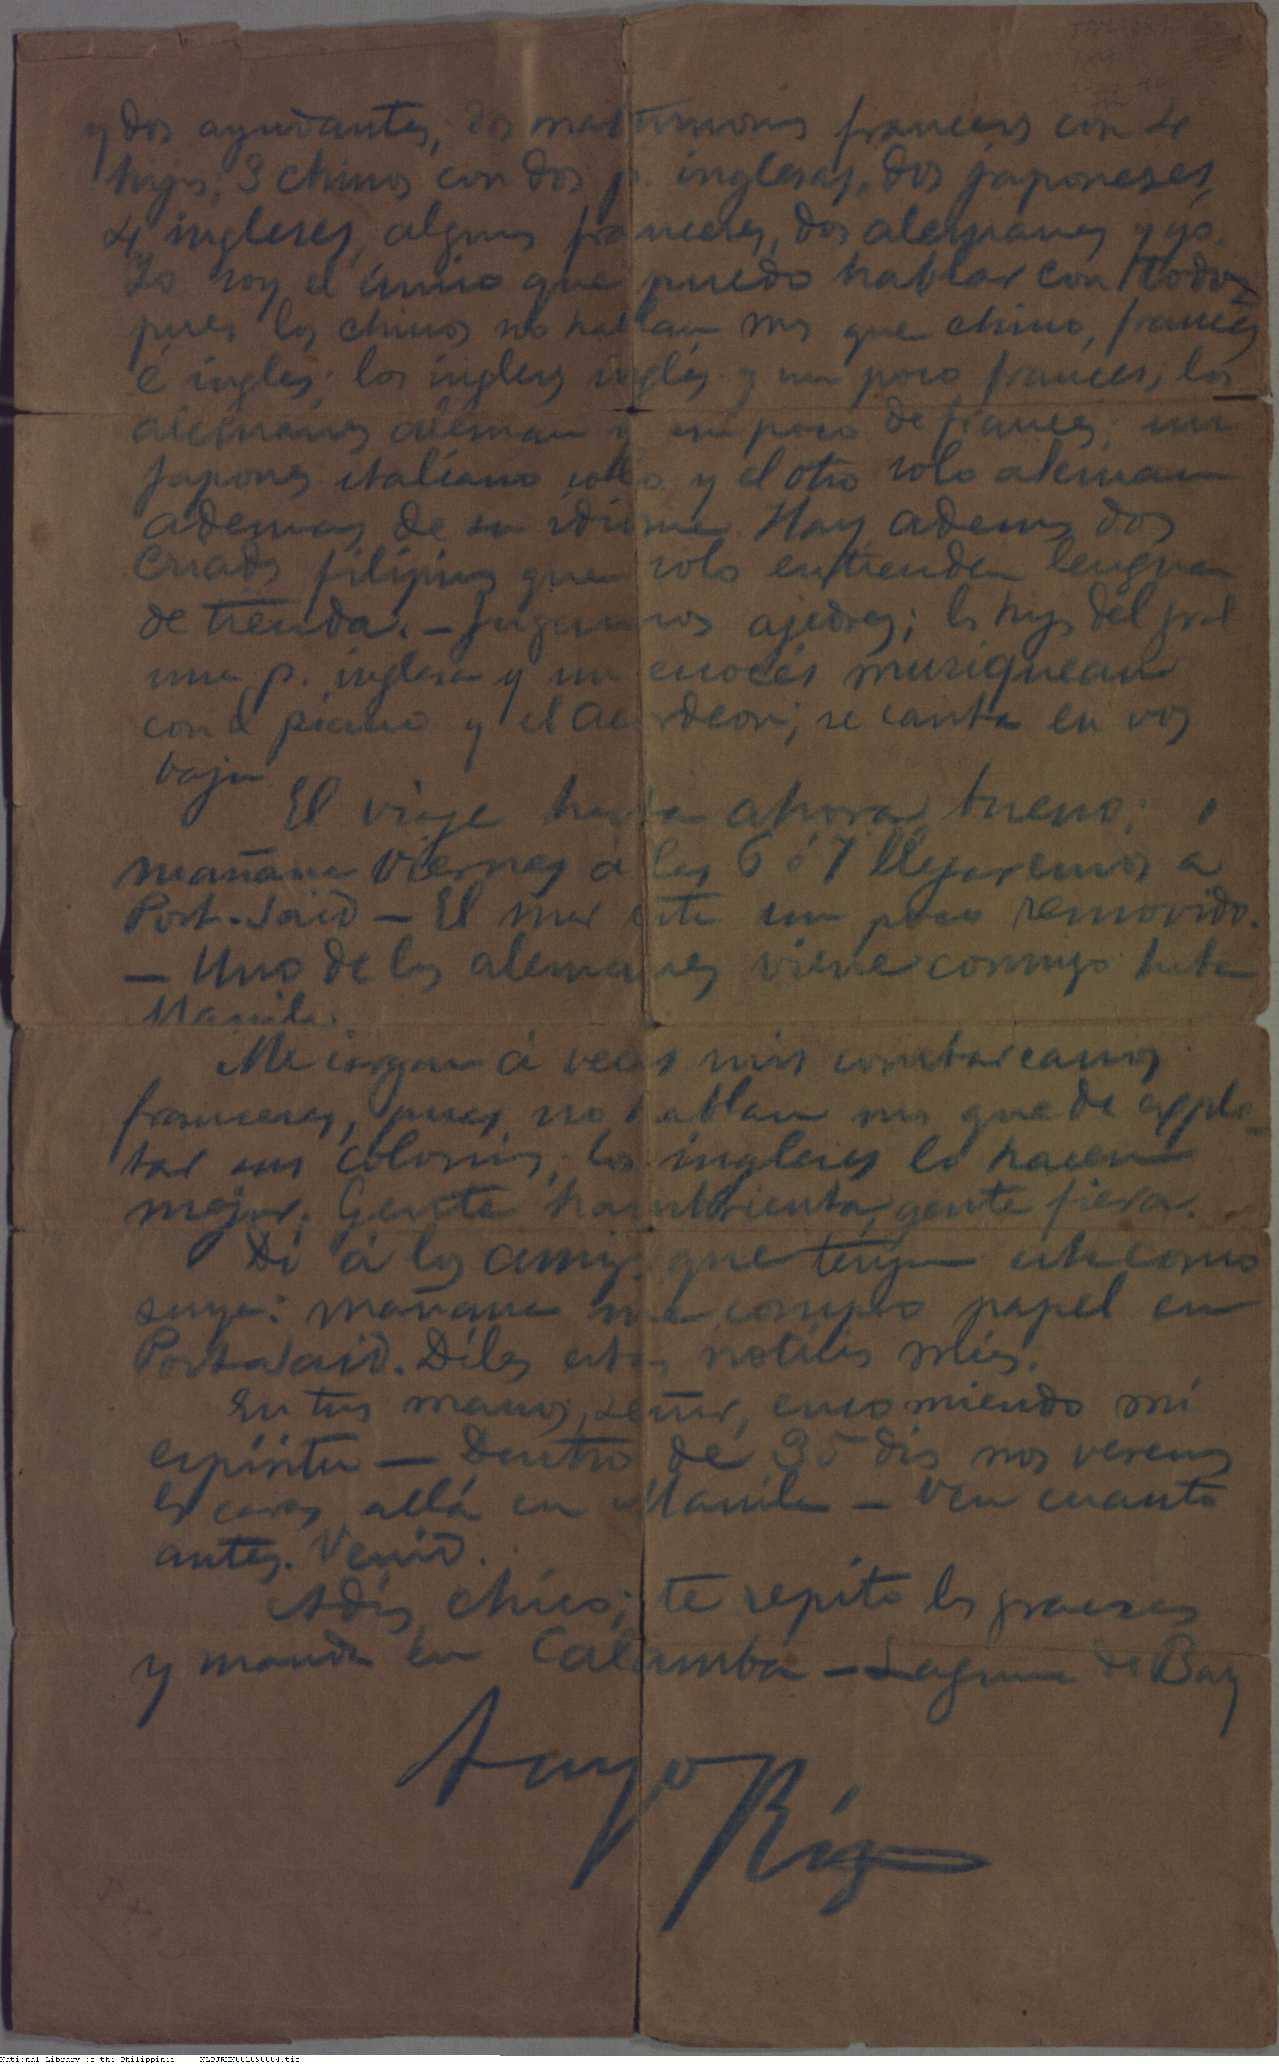 y dos ayudantes, dos matrimonios franceses con 4
hijos, 3 chinos con dos p. inglesas, dos japoneses,
4 ingleses, algunos franceses, dos alemanes y yo.
Yo soy el único que puedo hablar con todos
pues los chinos no hablan mas que chino, francés
é inglés; los ingleses inglés y un poco francés; los
alemanes aleman y un poco de francés; un
japones italiano solo y el otro solo aleman
ademas de su idioma. Hay ademas dos
criados filipinos que solo entienden lengua
de tienda. — Jugamos ajedrez; los hijos del gral
una p. inglesa y un escocés musiquean
con el piano y el acordeon; se canta en voz
baja
El viaje hasta ahora bueno;
mañana Viernes á las 6 ó 7 llegaremos a
Port-Said — El mar está un poco removido.
— Uno de los alemanes viene conmigo hasta
Manila.
Me cargan á veces mis comarcanos
franceses, pues no hablan mas que de explo-
tar sus colonias; los ingleses lo hacen
mejor. Gente hambrienta, gente fiera.
Dí á los amigos que tengan esta como
suya: mañana me compro papel en
Port-Said. Díles estas noticias mias.
En tus manos, Señor, encomiendo mi
espíritu — Dentro de 35 dias nos veremos
las caras allá en Manila — Ven cuanto
antes. Venid.
Adios, chico; te repito las gracias
y manda en Calamba — Laguna de Bay
tuyo
Rizal
National Library of the Philippines